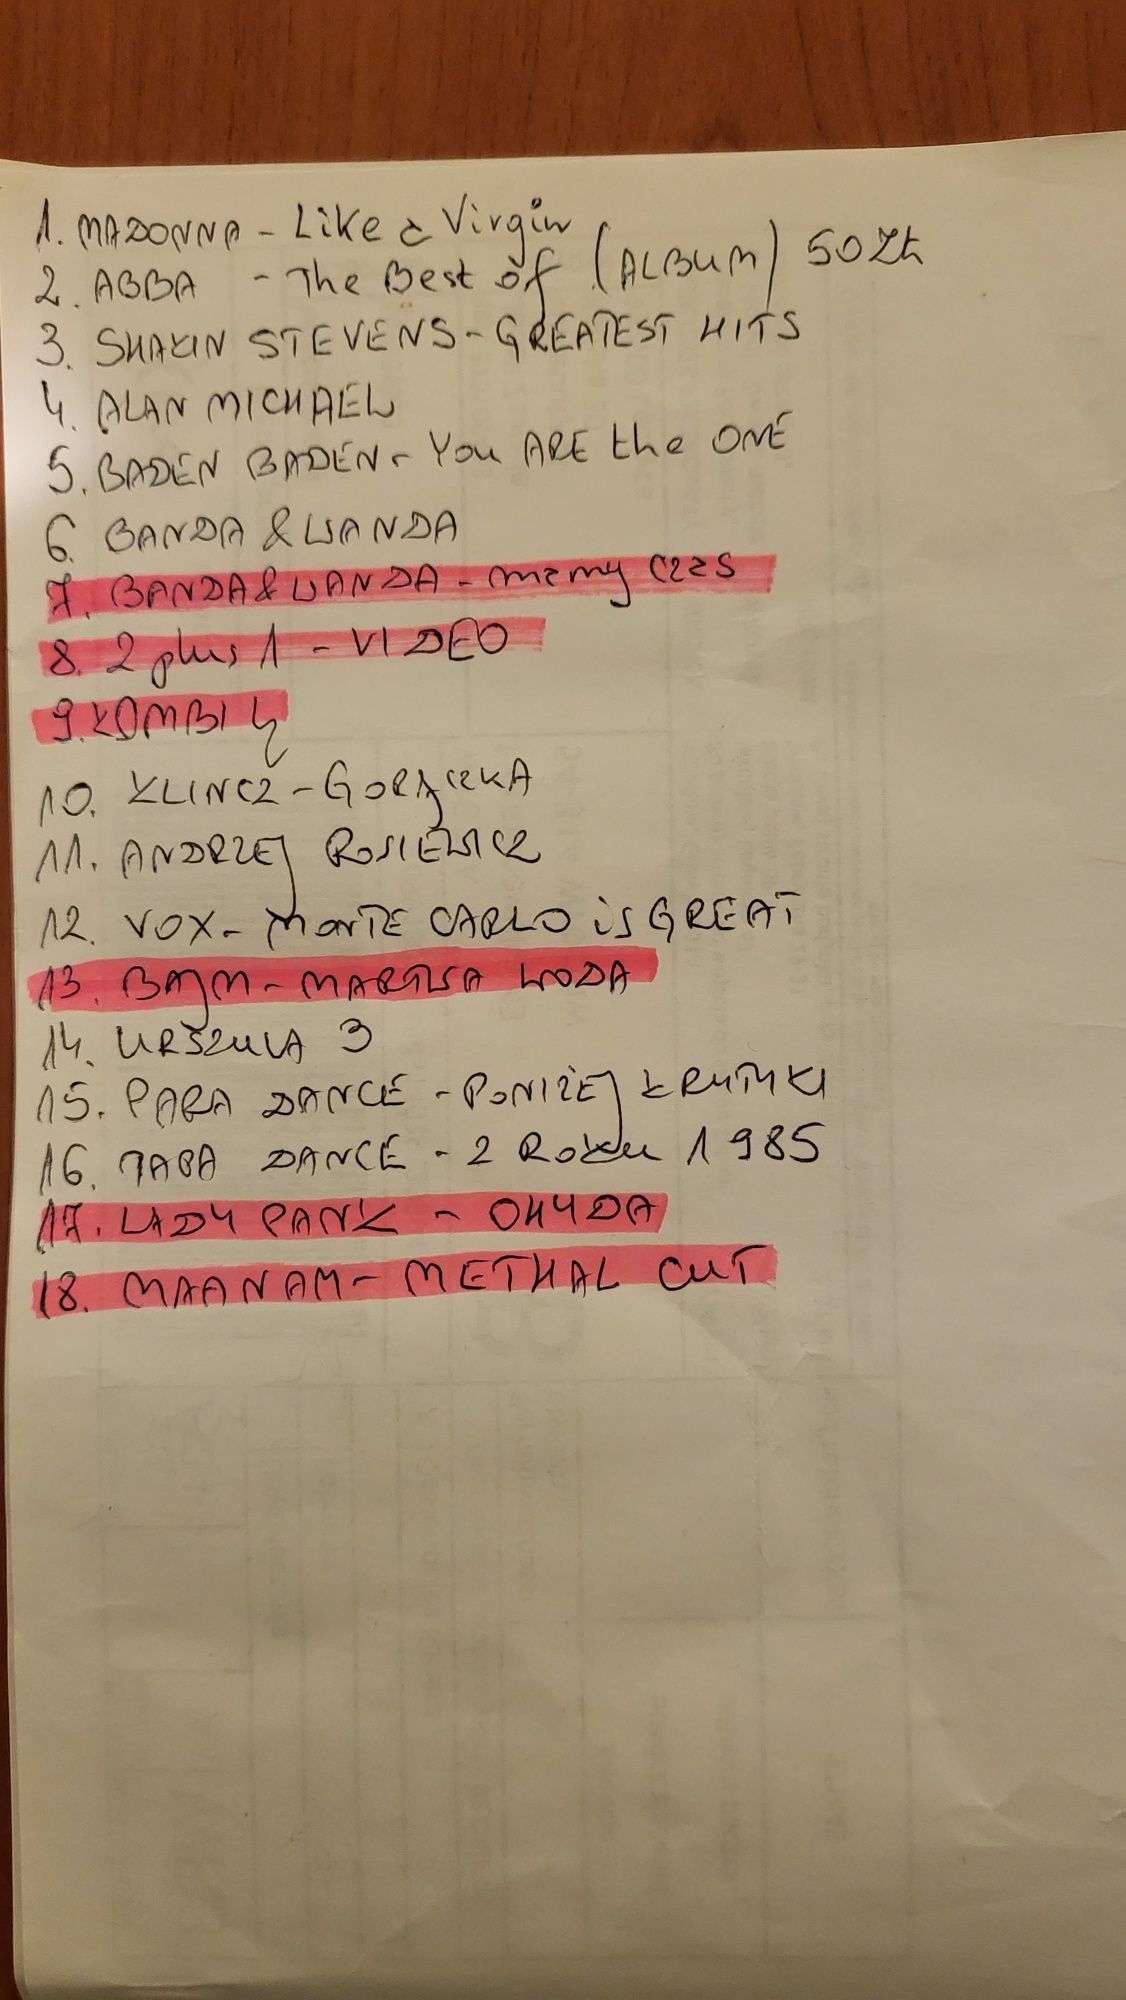 1. MADONNA - Like a Virgin
2. ABBA - The Best of (ALBUM) 50 Zł
3. SHAKIN STEVENS - GREATEST HITS
4. ALAN MICHAEL
5. BADEN BADEN - You ARE the ONE
6. BANDA & WANDA
7. BANDA & WANDA - mamy czas
8. 2 plus 1 - VIDEO
9. KOMBI 4
10. KLINCZ - GORĄCZKA
11. ANDRZEJ ROSIEWICZ
12. VOX - MONTE CARLO is GREAT
13. BAJM - MARTWA WODA
14. URSZULA 3
15. PARA DANCE - PONIŻEJ KRYTYKI
16. PARA DANCE - Z ROKU 1985
17. LADY PANK - OHYDA
18. MAANAM - METHAL CUT